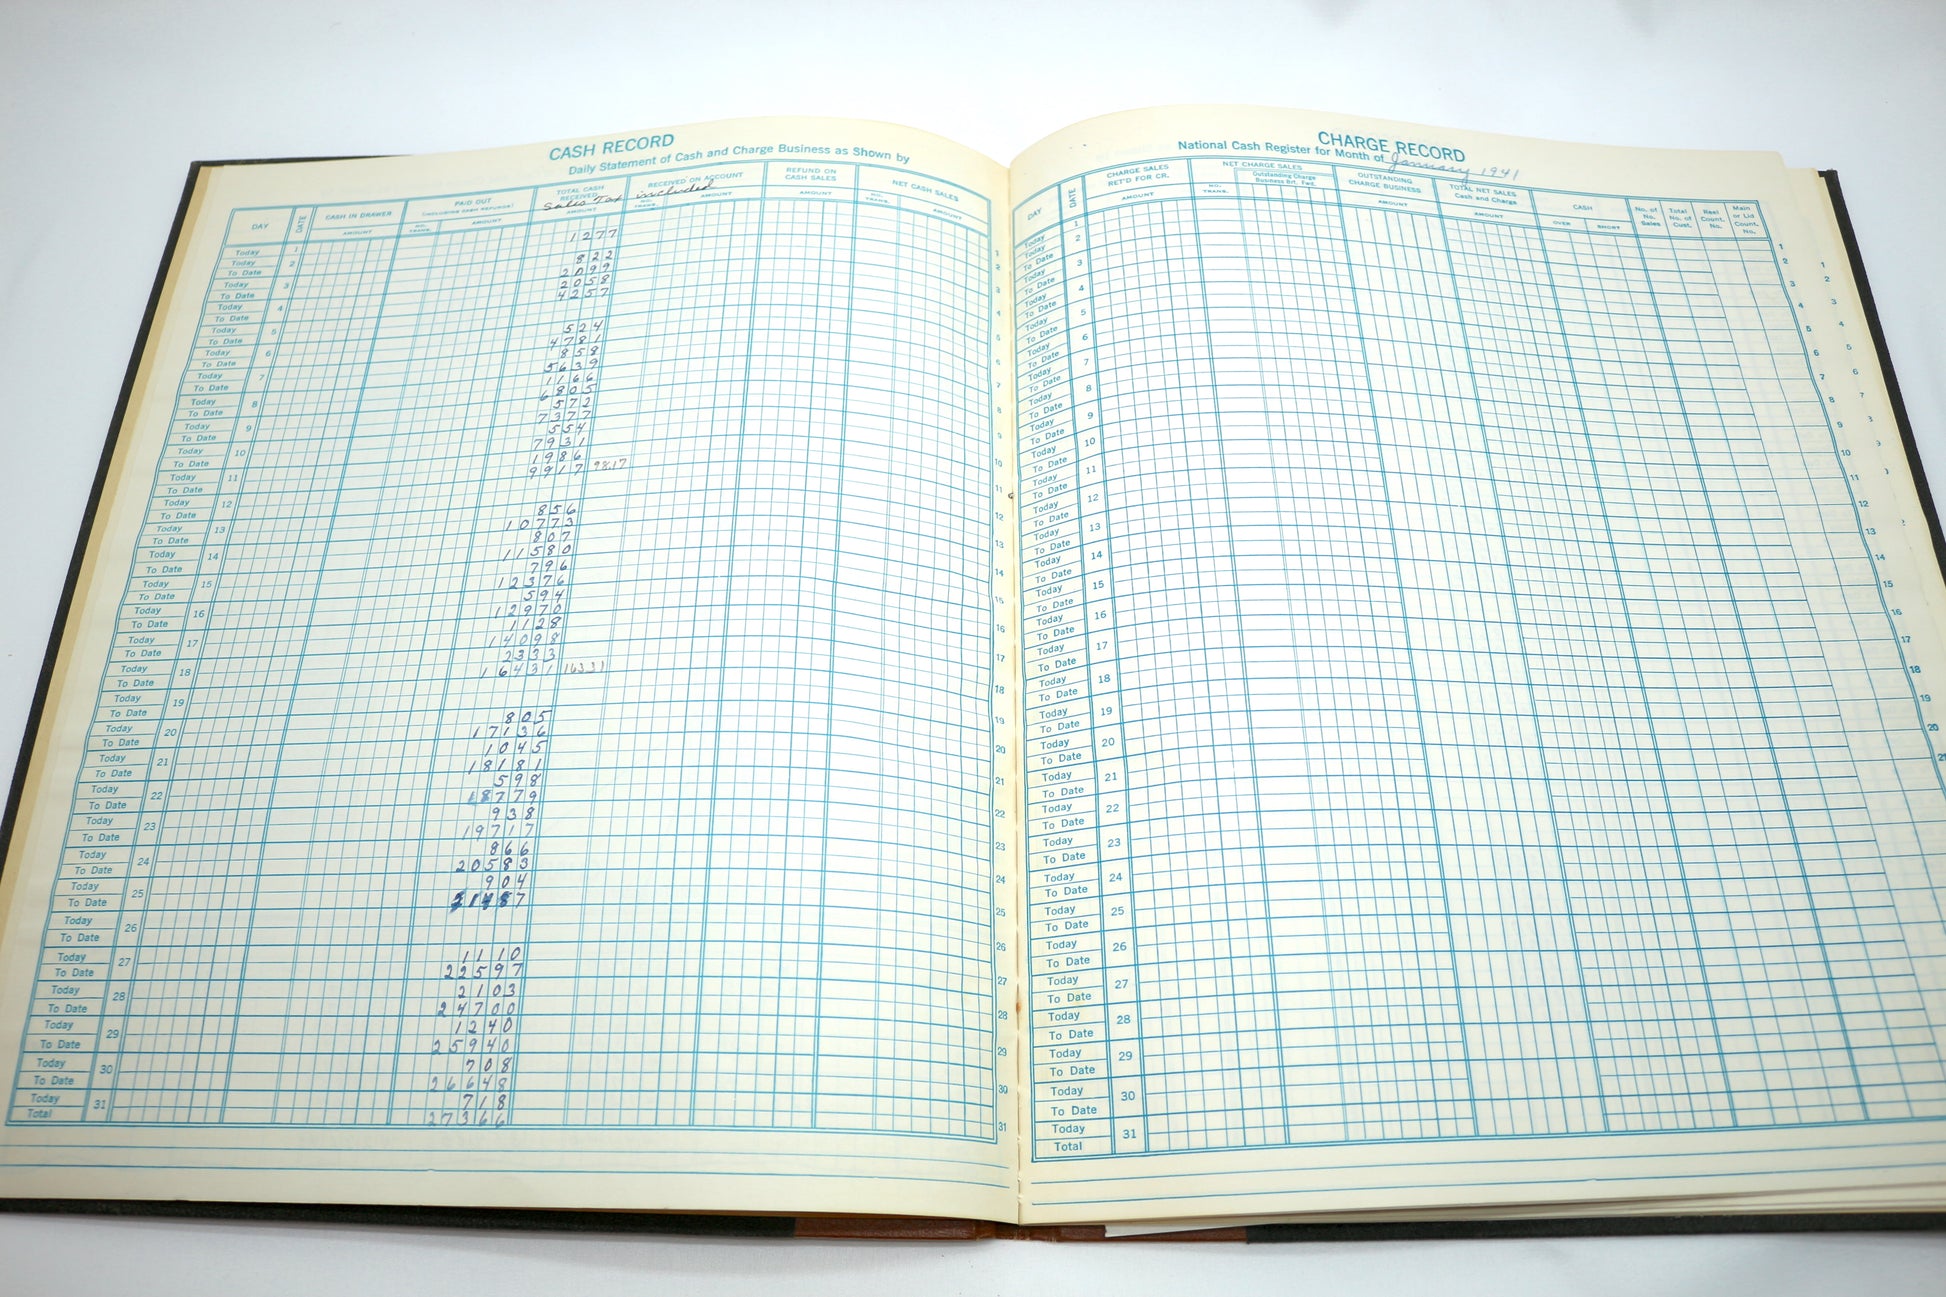 CASH RECORD
Daily Statement of Cash and Charge Business as Shown by
DAY DATE CASH IN DRAWER PAID OUT TOTAL CASH RECEIVED RECEIVED ON ACCOUNT REFUND ON CASH SALES NET CASH SALES
(INCLUDING CASH REFUNDS)
Sales Tax included
AMOUNT NO. TRANS. AMOUNT AMOUNT NO. TRANS. AMOUNT AMOUNT NO. TRANS. AMOUNT
Today 1 1277 1
Today 2 822 2
To Date 2099
Today 3 2058 3
To Date 4257
Today 4
To Date
Today 5 524 5
To Date 4781
Today 6 858 6
To Date 5639
Today 7 1166 7
To Date 6805
Today 8 572 8
To Date 7377
Today 9 554 9
To Date 7931
Today 10 1986 10
To Date 9917 9817
Today 11 11
To Date
Today 12 856 12
To Date 10773
Today 13 807 13
To Date 11580
Today 14 796 14
To Date 12376
Today 15 594 15
To Date 12970
Today 16 1128 16
To Date 14098
Today 17 2333 17
To Date 16431 16331
Today 18 18
To Date
Today 19 805 19
To Date 17136
Today 20 1045 20
To Date 18181
Today 21 598 21
To Date 18779
Today 22 938 22
To Date 19717
Today 23 866 23
To Date 20583
Today 24 904 24
To Date 21487
Today 25 25
To Date
Today 26 1110 26
To Date 22597
Today 27 2103 27
To Date 24700
Today 28 1240 28
To Date 25940
Today 29 708 29
To Date 26648
Today 30 718 30
To Date 27366
Today 31 31
Total
CHARGE RECORD
National Cash Register for Month of January 1941
DAY DATE CHARGE SALES RET'D FOR CR. NET CHARGE SALES OUTSTANDING CHARGE BUSINESS TOTAL NET SALES Cash and Charge CASH No. of No. Sales Total No. of Cust. Real Count. No. Main or Lid Count. No.
Outstanding Charge Business Brt. Fwd.
AMOUNT NO. TRANS. AMOUNT AMOUNT OVER SHORT
Today 1
Today 2
To Date
Today 3
To Date
Today 4
To Date
Today 5
To Date
Today 6
To Date
Today 7
To Date
Today 8
To Date
Today 9
To Date
Today 10
To Date
Today 11
To Date
Today 12
To Date
Today 13
To Date
Today 14
To Date
Today 15
To Date
Today 16
To Date
Today 17
To Date
Today 18
To Date
Today 19
To Date
Today 20
To Date
Today 21
To Date
Today 22
To Date
Today 23
To Date
Today 24
To Date
Today 25
To Date
Today 26
To Date
Today 27
To Date
Today 28
To Date
Today 29
To Date
Today 30
To Date
Today 31
Total